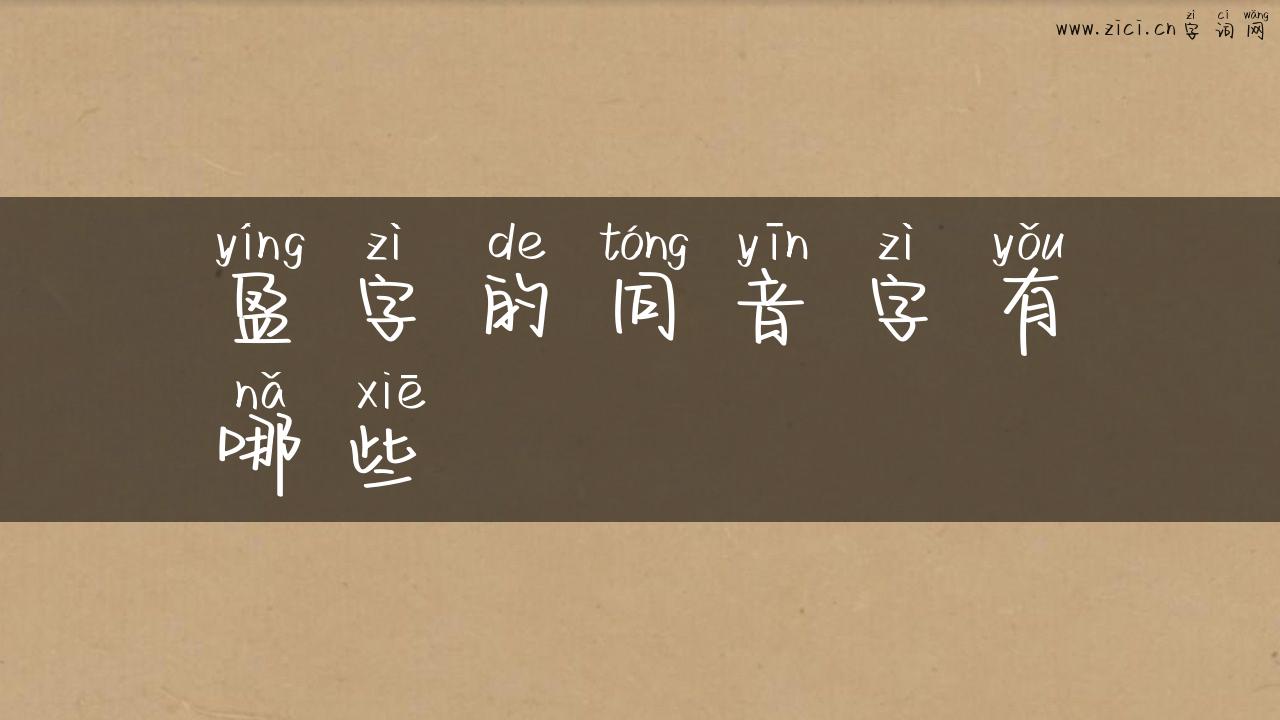 zì cí wǎng
www.zici.cn 字 词 网
yíng zì de tóng yīn zì yǒu
盈 字 的 同 音 字 有
nǎ xiē
哪 些